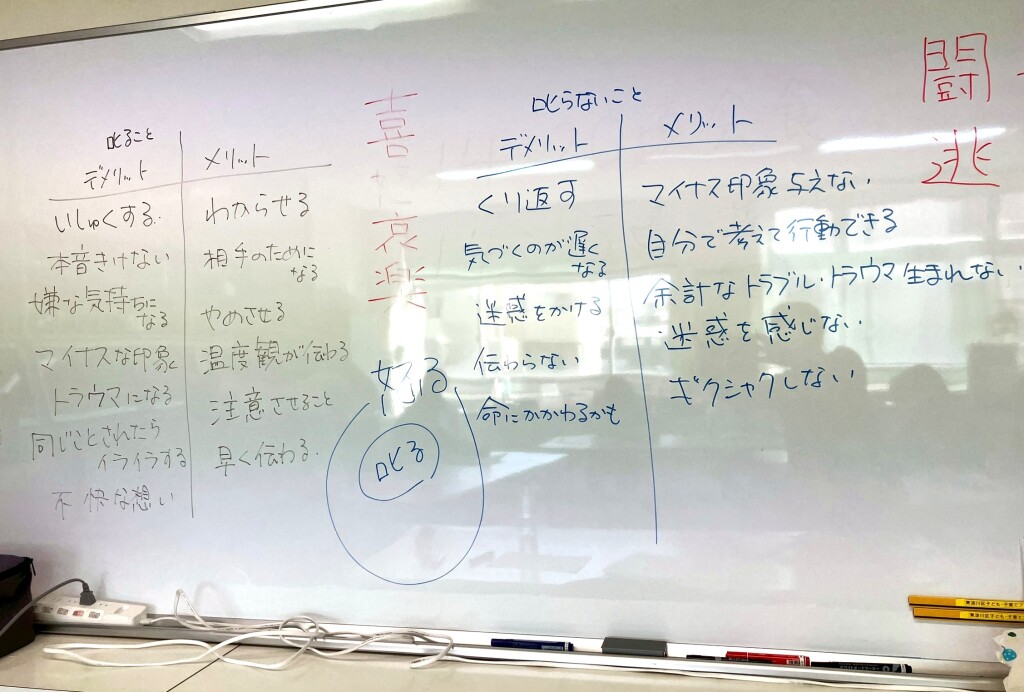 叱ること
デメリット
メリット
いしゅくする.
本音きけない
嫌な気持ちに
なる
マイナスな印象
トラウマになる
同じことされたら
イライラする
不快な想い
わからせる
相手のために
なる
やめさせる
温度観が伝わる
注意させること
早く伝わる.
喜
哀
楽
怒る
叱る
叱らないこと
デメリット
メリット
くり返す
気づくのが遅く
なる
迷惑をかける
伝わらない
命にかかわるかも
マイナス印象与えない
自分で考えて行動できる
余計なトラブル・トラウマ生まれない
迷惑を感じない
ギクシャクしない
闘
逃